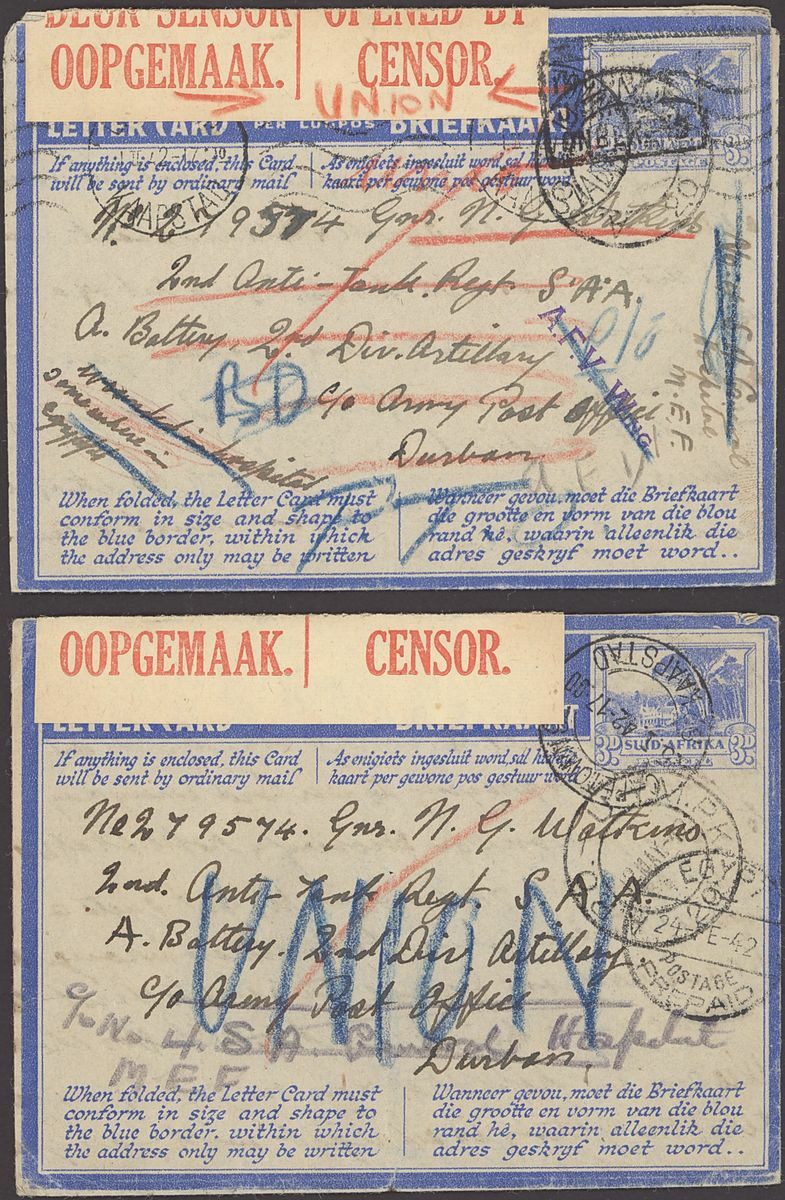 DEUR SENSOR | OPENED BY
OOPGEMAAK. | CENSOR.
UNION
LETTER CARD PER LUGPOS BRIEFKAART
If anything is enclosed, this Card
will be sent by ordinary mail
As enigiets ingesluit word, sal
kaart per gewone pos gestuur word
KAAPSTAD
POSTAGE
3D
Gnr. N. G. Watkins
2nd Anti-Tank. Regt. S.A.A.
A. Battery 2nd Div. Artillery
c/o Army Post Office
Durban
A.F.V. Wing
BD
wounded in hospital
somewhere in
egypt
Hospital
M.E.F.
When folded, the Letter Card must
conform in size and shape to
the blue border, within which
the address only may be written
Wanneer gevou, moet die Briefkaart
die grootte en vorm van die blou
rand hê, waarin alleenlik die
adres geskryf moet word..
OOPGEMAAK. | CENSOR.
LETTER CARD BRIEFKAART
If anything is enclosed, this Card
will be sent by ordinary mail
As enigiets ingesluit word, sal
kaart per gewone pos gestuur word
KAAPSTAD
3D SUID-AFRIKA 3D
EGYPT
POSTAGE
PREPAID
No 279574. Gnr. N. G. Watkins
2nd. Anti-Tank Regt. S A A.
A. Battery. 2nd Div. Artillery.
c/o Army Post Office
Durban.
UNION
c/o No 4. S A General Hospital
M E F
When folded, the Letter Card must
conform in size and shape to
the blue border, within which
the address only may be written
Wanneer gevou, moet die Briefkaart
die grootte en vorm van die blou
rand hê, waarin alleenlik die
adres geskryf moet word..